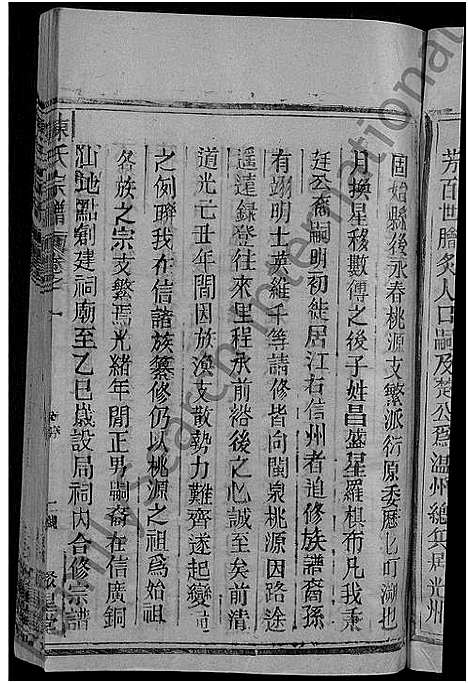 芳百世膾炙人口嗣及楚公爲温州總兵居光州
固始縣後永春桃源支繁派衍原委歷匕可溯也
月換星移數傳之後子姓昌盛星羅棋布凡我秉
廷公裔嗣明初徙居江右信州者迨修族譜裔孫
有翊明士英維千等請修皆向閩泉桃源因路途
遥遠録登往來里程承前裕後之心誠至矣前清
道光元廿年間因族渙支散勢力難齊遂起變
之例聨我在信諸族纂修仍以桃源之祖爲始祖
各族之宗支繁焉光緒年間正男嗣裔在信廣銅
山地點創建祠廟至乙巳歲設局祠内合修宗譜
陳氏宗譜 卷之一
International